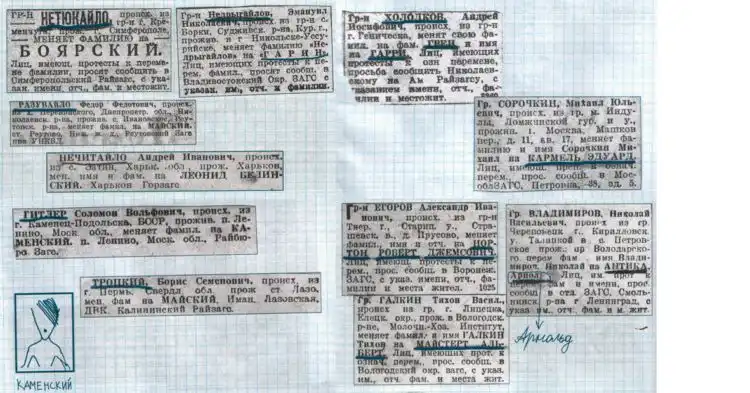 Гр-н НЕТЮКАЙЛО, происх. из
гр-н г. Кре-
менчуга, прож. г. Симферополе,
МЕНЯЕТ ФАМИЛИЮ на
БОЯРСКИЙ.
Лиц, имеющ. протесты к переме-
не фамилии, просят сообщить в
Симферопольский Райзагс, с ука-
зан. имени, отч., фам. и местожит.
Гр-н Недрыгайлов, Эмануил
Николаевич, происх. из гр-н с.
Борки, Суджинск. р-на, Кур. г.,
прожив. в г. Никольске-Уссу-
рийске, меняет фамилию «Не-
дрыгайлов» на «ГАРИН».
Лиц, имеющ. протесты к пе-
рем. фамил., просят сообщ. в
Владивостокский Окр. ЗАГС с
указан. им., отч. и фамилии.
Гр-н ХОЛОДКОВ, Андрей
Иосифович, происх. из гр-н
г. Геническа, меняет свою фа-
мил. на фам. ГРЕЙ и имя
на ГАРРИ. Лиц, имеющих
протесты к озн. перемене,
просьба сообщить Николаев-
скому на Ам. Райзагсу, с
указанием имени, отч., фа-
милии и местожит.
РАЗУВАЙЛО Федор Федотович, происх.
из х. Первомайского, Днепропетр. обл., Ни-
меняет фамил. на МАЙСКИЙ.
при УНКВД.
Гр. СОРОЧКИН, Михаил Юль-
евич, происх. из гр. м. Инду-
лы, Домжичской губ. и у.,
прожив. г. Москва, Машков
пер., д. 11, кв. 17, меняет фа-
милию и имя Сорочкин Ми-
хаил на КАРМЕЛЬ ЭДУАРД.
Лиц, имеющ. прен. к означ.
перем., прос. сообщ. в Мос-
облЗАГС, Петровка, 38, зд. 5.
НЕЧИТАЙЛО Андрей Иванович, происх.
из с. Харьк. обл., прож. Харьков,
мен. имя и фам. на ЛЕОНИД БЕЛИН-
СКИЙ. Харьков Горзагс
ГИТЛЕР Соломон Вольфович, происх. из
г. Каменец-Подольска, УССР, прожив. п. Ле-
нино, Моск. обл., меняет фамил. на КА-
МЕНСКИЙ. п. Ленино, Моск. обл., Райбю-
ро Загс.
Гр-н ЕГОРОВ Александр Ива-
нович, происх. из гр-н
Твер. г., Стариц. у.,
д. Прусово, меняет
фамил., имя и отч. на НОР-
ТОН РОБЕРТ ДЖЕМСОВИЧ.
Лиц, имеющ. протесты к
перем., прос. сообщ. в Воронеж.
ЗАГС, с указ. имени, отч., фа-
милии и места жител. 1025
Гр. ВЛАДИМИРОВ, Николай
Васильевич, происх. из гр.
Череповецк. г., Кирилловск.
у., Талицкой в., с. Петров-
ское, прож.: пр. Володарско-
го, меняет фам. имя Влади-
миров, Николай на АНТИКА,
Арнольд. Лиц, им. прот.
к перем. фам. и имени, прос.
сообщ. в отд. ЗАГС, Смоль-
нинск. р-на г. Ленинград, с
указ. им., отч., фам. и м. жит.
ТРОЦКИЙ, Борис Семенович, происх. из
г. Пермь, Сверлл. обл., прож. ст. Лазо,
мен. фам. на МАЙСКИЙ, Иман, Лазовская,
ДВК. Калининский Райзагс.
Гр. ГАЛКИН Тихон Васил.,
происх. из гр. г. Липецка,
Елецк. окр., прож. в Вологодск.
р-не, Молочн.-Хоз. Институт,
меняет фамил. и имя ГАЛКИН
Тихон на МАЙСТЕРТ АЛЬ-
БЕРТ. Лиц, имеющих прот. к
означ. перем., прос. сообщ. в
Вологодский окр. загс, с указ.
им., отч., фам. и места жит.
Арнольд
КАМЕНСКИЙ